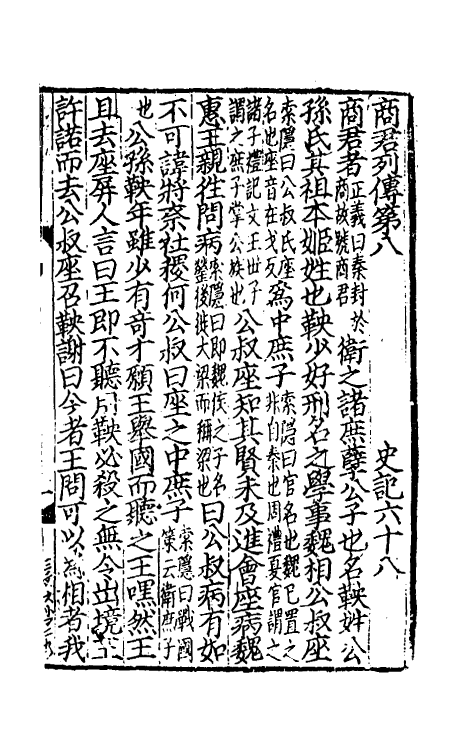 商君列傳第八　史記六十八
商君者正義曰秦封於商故號商君衛之諸庶孽公子也名鞅姓公
孫氏其祖本姬姓也鞅少好刑名之學事魏相公叔座
索隱曰公叔氏座名也座音在戈反爲中庶子索隱曰官名也魏已置之非自秦也周禮夏官謂之
諸子禮記文王世子謂之庶子掌公族也公叔座知其賢未及進會座病魏
惠王親往問病索隱曰即魏侯之子名罃後徙大梁而稱梁也曰公叔病有如
不可諱將柰社稷何公叔曰座之中庶子索隱曰戰國策云衛庶子
也公孫鞅年雖少有奇才願王舉國而聽之王嘿然王
且去座屏人言曰王即不聽用鞅必殺之無令出境王
許諾而去公叔座召鞅謝曰今者王問可以爲相者我